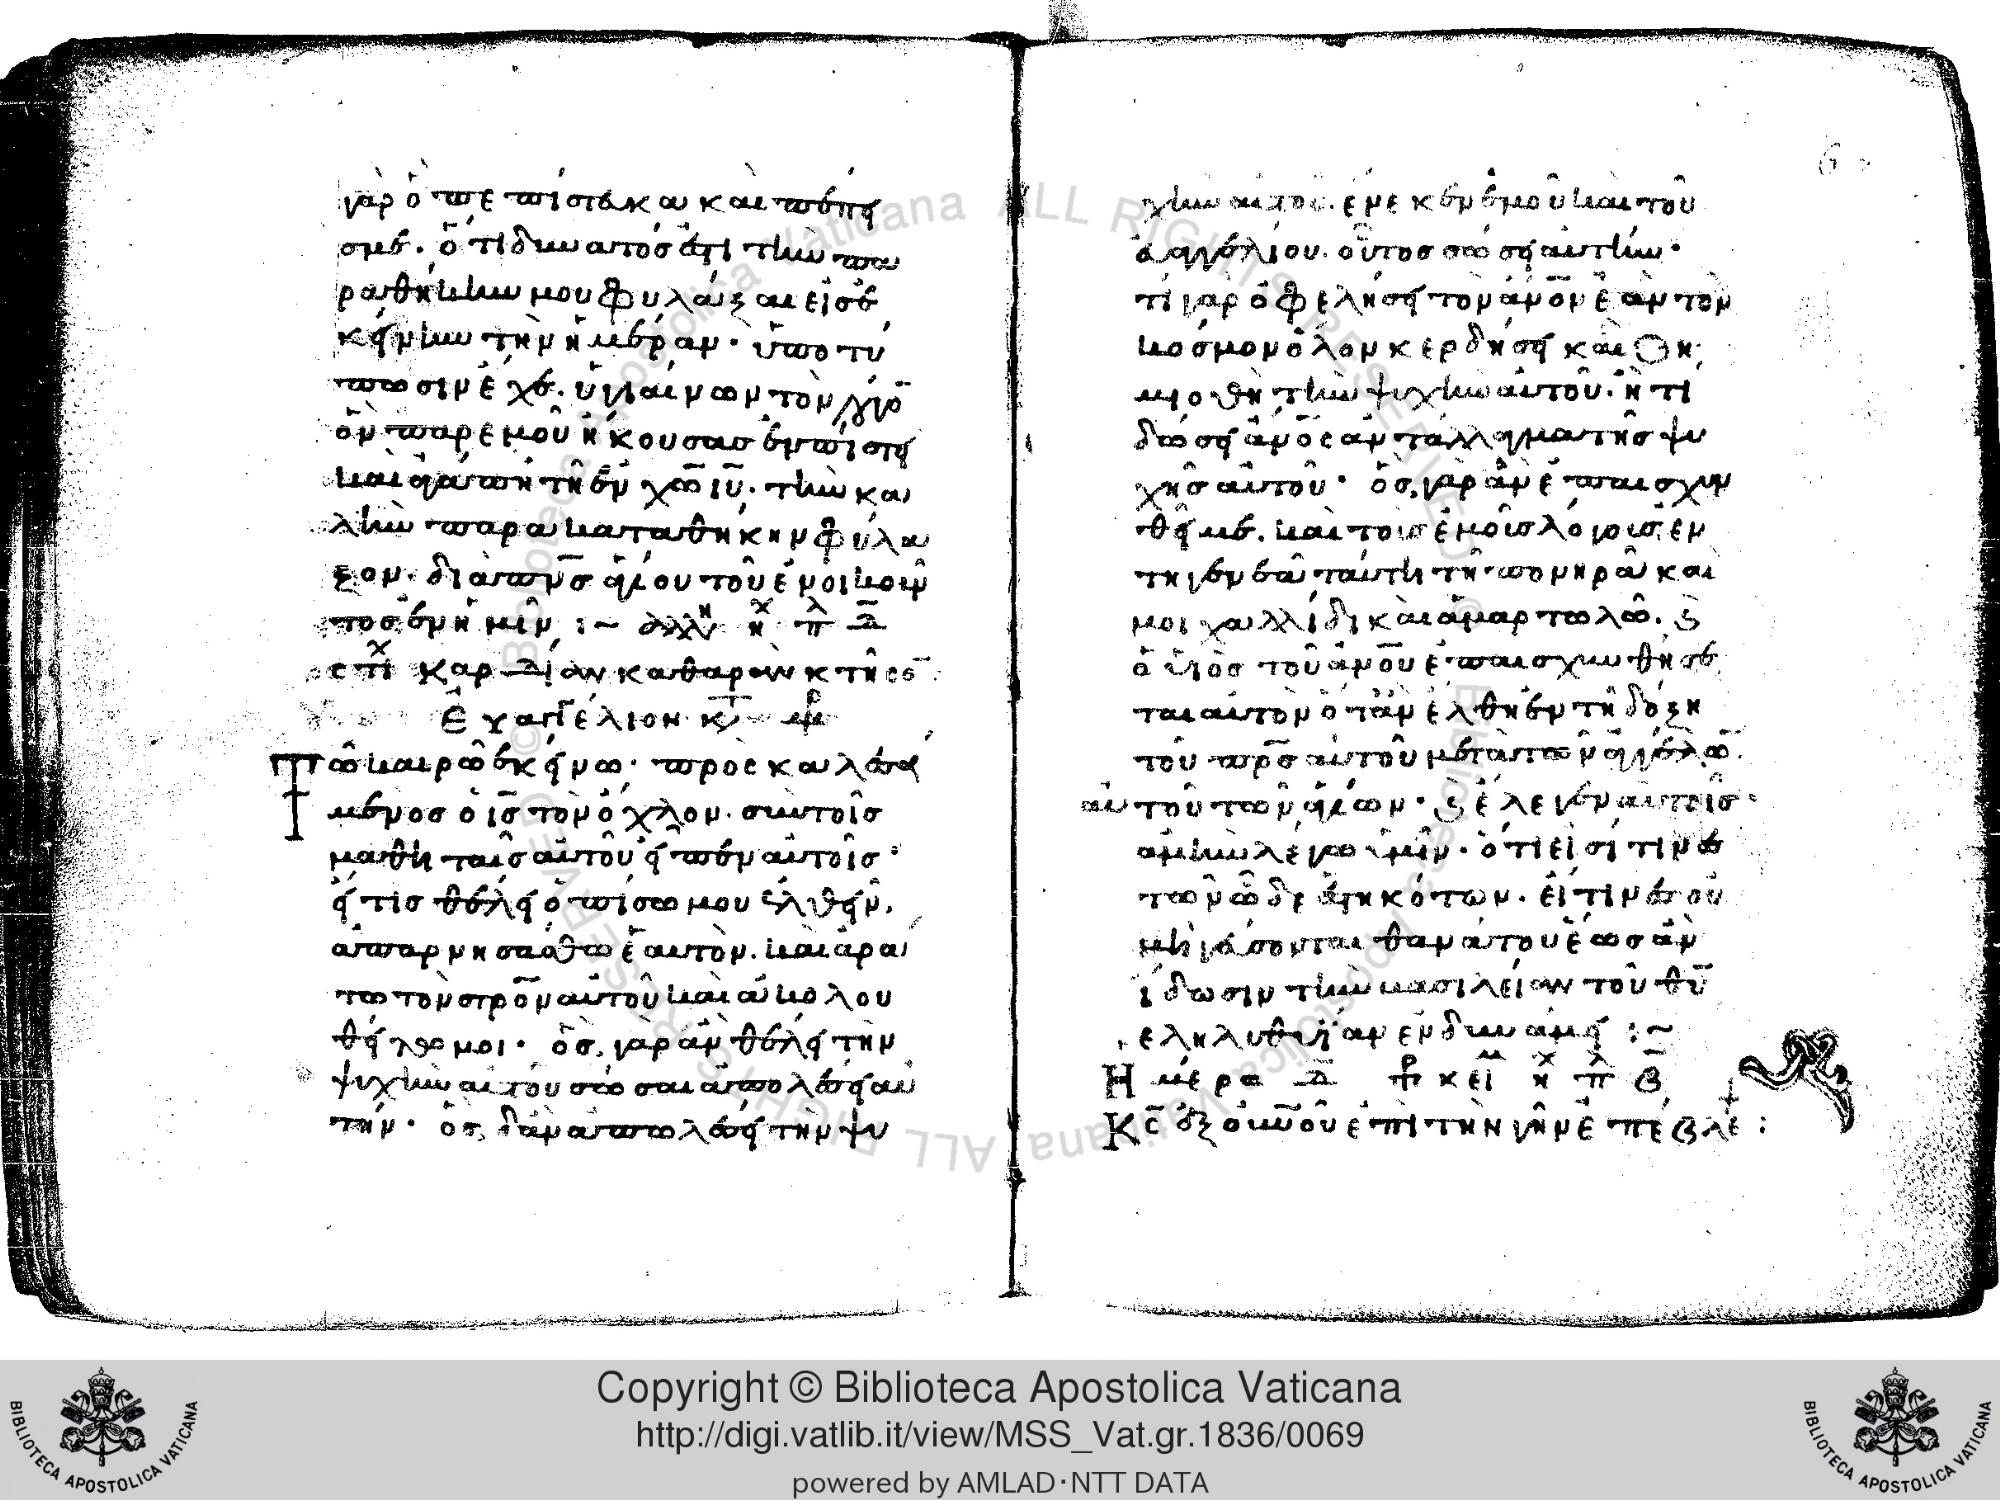 γὰρ ὃ πεπίστευκα καὶ πέπει
σμε. ὅτι δυνατός ἐστι τὴν πα
ραθήκην μου φυλάξαι εἰς ἐ
κείνην τὴν ἡμέραν. ὑποτύ
πωσιν ἔχε. ὑγιαινόντων λόγω
ὧν παρ ἐμοῦ ἤκουσας ἐν πίστει
καὶ ἀγάπη τῆ ἐν χω ιυ. τὴν κα
λὴν παρακαταθήκην φύλα
ξον. διὰ πνσ ἁγίου τοῦ ἐνοικοῦν
τος ἐν ἡμῖν :~
στι Καρδίαν καθαρὰν κτησ
Εὐαγγέλιον κτ μρ
Τῶ καιρῶ ἐκείνω. προσκαλεσά
μενος ὁ ις τὸν ὄχλον. σὺν τοῖς
μαθηταῖς αὐτοῦ εἶπεν αὐτοῖς.
εἴ τις θέλει ὀπίσω μου ἐλθεῖν,
ἀπαρνησάσθω ἑαυτὸν. καὶ ἀρά
τω τὸν στρον αὐτοῦ καὶ ἀκολου
θείτω μοι. ὃς γὰρ ἂν θέλη τὴν
ψυχὴν αὐτοῦ σῶσαι ἀπολέσει αὐ
τήν. ὃς δ ἂν ἀπολέσει τὴν ψυ
χὴν αὐτοῦ. ἕνεκεν ἐμοῦ καὶ τοῦ
εὐαγγελίου. οὗτος σώσει αὐτὴν.
τί γὰρ ὀφελήσει τὸν ἄνον ἐὰν τὸν
κόσμον ὅλον κερδήσει καὶ ζη
μιοθῆ τὴν ψυχὴν αὐτοῦ. ἢ τί
δώσει ἄνος ἀντάλλαγμα τῆς ψυ
χῆς αὐτοῦ. ὃς γὰρ ἂν ἐπαισχυν
θῆ με. καὶ τοῖς ἐμοῖς λόγοις ἐν
τῆ γενεᾶ ταύτη τῆ πονηρᾶ καὶ
μοιχαλλίδι καὶ ἁμαρτωλῶ. ϗ
ὁ ὑιὸς τοῦ ἀνου ἐπαισχυνθήσε
ται αὐτὸν ὅταν ἔλθη ἐν τῆ δόξη
τοῦ πρσ αὐτοῦ μετὰ τῶν ἀγγέλων
αὐτοῦ τῶν ἁγίων. ϗ ἔλεγεν αὐτοῖς.
ἀμὴν λέγω ὑμῖν. ὅτι εἰσί τινες
τῶν ὧδε ἑστηκότων. οἵτινες οὐ
μὴ γεύσονται θανάτου ἕως ἂν
ἴδωσιν τὴν βασιλείαν τοῦ θυ
εληλυθυῖαν ἐν δυνάμει :~
Ημέρα δ
Κς ἐξ οὐνοῦ ἐπὶ τὴν γῆν ἐπέβλε :
Copyright © Biblioteca Apostolica Vaticana
http://digi.vatlib.it/view/MSS_Vat.gr.1836/0069
powered by AMLAD·NTT DATA
BIBLIOTECA APOSTOLICA VATICANA
BIBLIOTECA APOSTOLICA VATICANA